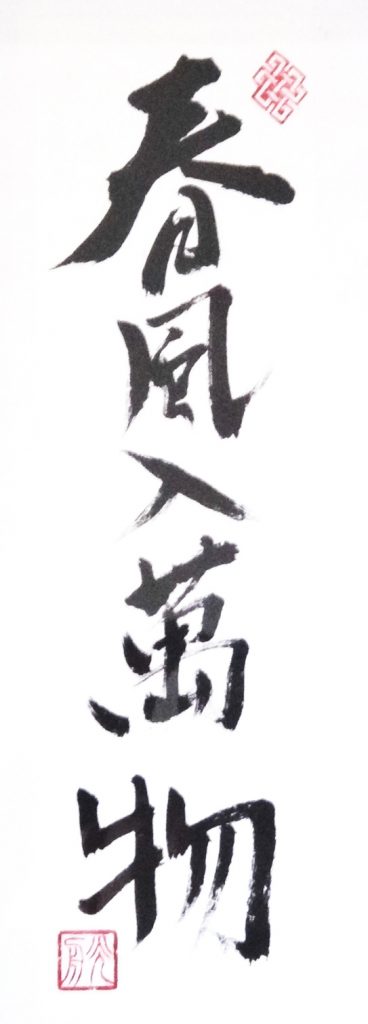 春風入萬物